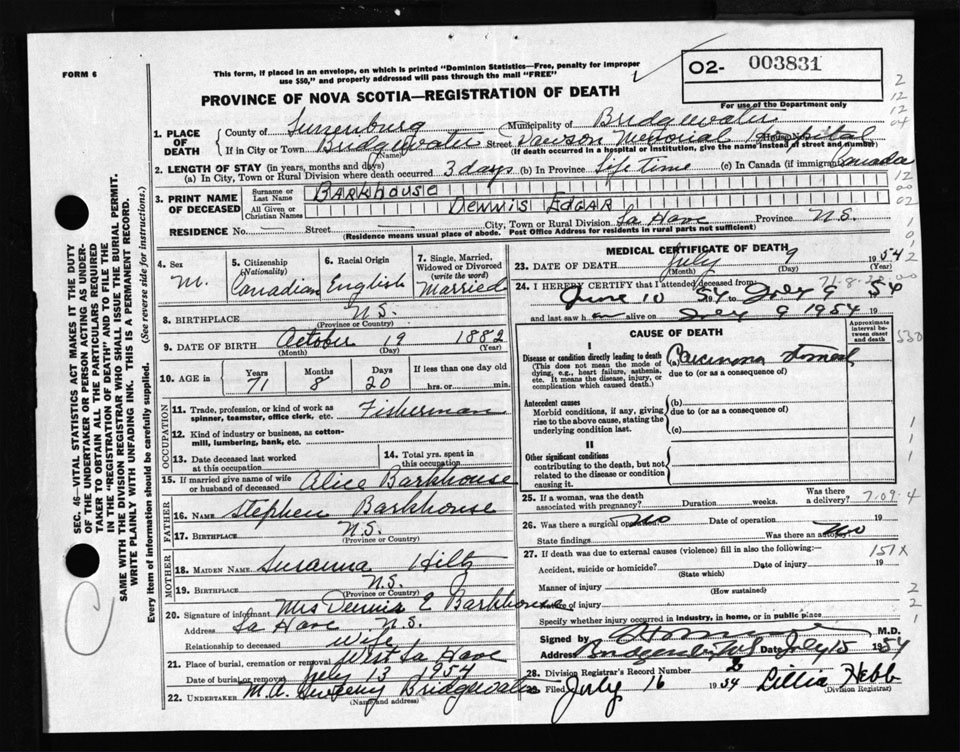 FORM 6
This form, if placed in an envelope, on which is printed "Dominion Statistics—Free, penalty for improper
use $50," and properly addressed will pass through the mail "FREE"
O2- 003831
For use of the Department only
PROVINCE OF NOVA SCOTIA—REGISTRATION OF DEATH
1. PLACE OF DEATH
County of Lunenburg Municipality of Bridgewater
If in City or Town Bridgewater Street Dawson Memorial Hospital House No.
(Name) (If death occurred in a hospital or institution, give the name instead of street and number)
2. LENGTH OF STAY (in years, months and days)
(a) In City, Town or Rural Division where death occurred 3 days (b) In Province Life time (c) In Canada (if immigrant) Canada
3. PRINT NAME OF DECEASED
Surname or Last Name BARKHOUSE
All Given or Christian Names DENNIS EDGAR
RESIDENCE No. — Street — City, Town or Rural Division La Have Province N.S.
(Residence means usual place of abode. Post Office Address for residents in rural parts not sufficient)
4. Sex M.
5. Citizenship (Nationality) Canadian
6. Racial Origin English
7. Single, Married, Widowed or Divorced (write the word) Married
8. BIRTHPLACE N.S.
(Province or Country)
9. DATE OF BIRTH October 19 1882
(Month) (Day) (Year)
10. AGE in Years 71 Months 8 Days 20 If less than one day old
hrs. or min.
OCCUPATION
11. Trade, profession, or kind of work as
spinner, teamster, office clerk, etc. Fisherman
12. Kind of industry or business, as cotton-
mill, lumbering, bank, etc.
13. Date deceased last worked
at this occupation
14. Total yrs. spent in
this occupation
15. If married give name of wife
or husband of deceased Alice Barkhouse
FATHER
16. NAME Stephen Barkhouse
17. BIRTHPLACE N.S.
(Province or Country)
MOTHER
18. MAIDEN NAME Susanna Hiltz
19. BIRTHPLACE N.S.
(Province or Country)
20. Signature of informant Mrs Dennis E Barkhouse
Address La Have N.S.
Relationship to deceased wife
21. Place of burial, cremation or removal West La Have
Date of burial or removal July 13 1954
22. UNDERTAKER M.A. Bridgewater
(Name and address)
MEDICAL CERTIFICATE OF DEATH
23. DATE OF DEATH July 9 1954
(Month) (Day) (Year)
24. I HEREBY CERTIFY that I attended deceased from:
June 10 54 19 to July 9 54
and last saw h alive on July 9 1954 19
CAUSE OF DEATH
Approximate interval between onset and death
I
Disease or condition directly leading to death
(This does not mean the mode of
dying, e.g., heart failure, asthenia,
etc. It means the disease, injury, or
complication which caused death.)
(a) Carcinoma stomach
due to (or as a consequence of)
Antecedent causes
Morbid conditions, if any, giving
rise to the above cause, stating the
underlying condition last.
(b)
due to (or as a consequence of)
(c)
II
Other significant conditions
contributing to the death, but not
related to the disease or condition
causing it.
25. If a woman, was the death
associated with pregnancy? Duration weeks. Was there a delivery?
7.09.4
26. Was there a surgical operation No Date of operation 19
State findings Was there an autopsy? No
27. If death was due to external causes (violence) fill in also the following:—
151X
Accident, suicide or homicide? Date of injury 19
(State which)
Manner of injury
(How sustained)
Nature of injury
Specify whether injury occurred in industry, in home, or in public place
Signed by M.D.
Address Bridgewater, N.S. Date July 15 1954
28. Division Registrar's Record Number
Filed July 16 1954 Lillia Hebb
(Division Registrar)
SEC. 46—VITAL STATISTICS ACT MAKES IT THE DUTY
OF THE UNDERTAKER OR PERSON ACTING AS UNDER-
TAKER TO OBTAIN ALL THE PARTICULARS REQUIRED
IN THE "REGISTRATION OF DEATH" AND TO FILE THE
SAME WITH THE DIVISION REGISTRAR WHO SHALL ISSUE THE BURIAL PERMIT.
WRITE PLAINLY WITH UNFADING INK. THIS IS A PERMANENT RECORD.
Every item of information should be carefully supplied. (See reverse side for instructions.)